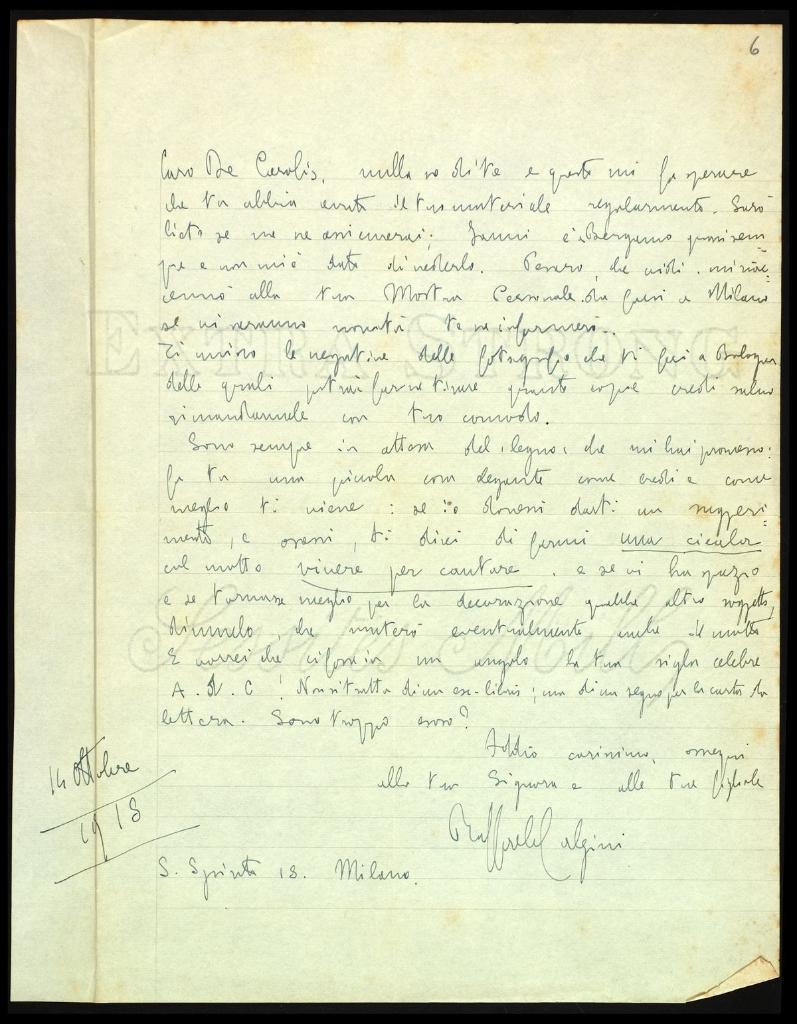 6
Caro De Carolis, nulla so di te e questo mi fa sperare
che tu abbia avuto il tuo materiale regolarmente. Sarò
lieto se me ne assicurerai; Sanni è a Bergamo quasi sem=
pre e non mi è dato di vederlo. Pesaro, che vidi, mi riac=
cennò alla tua Mostra Personale da farsi a Milano
se vi saranno novità te ne informerò.
Ti invio le negative delle fotografie che ti feci a Bologna
delle quali potrai farne tirare quante copie credi salvo
rimandarmele con tuo comodo.
Sono sempre in attesa del "legno" che mi hai promesso:
fa tu una piccola cosa elegante come credi e come
meglio ti viene: se io dovessi darti un suggeri=
mento, e osassi, ti direi di farmi una cicala
col motto vivere per cantare. e se vi ha spazio
e se tornasse meglio per la decorazione qualche altro soggetto,
dimmelo, che muterò eventualmente anche il motto
E vorrei che ci fosse in un angolo la tua sigla celebre
A. D. C! Non si tratta di un ex-libris; ma di un segno per la carta da
lettera. Sono troppo esoso?
Addio carissimo, ossequi
alla tua Signora e alle tue figliole
Raffaele Calzini
14 Ottobre
1918
S. Spirito 18. Milano.
EXTRA STRONG